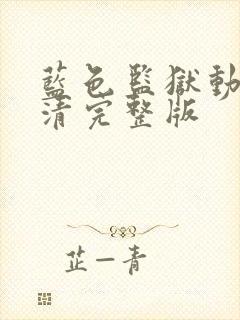 藍色監獄動
清完整版
芷一青